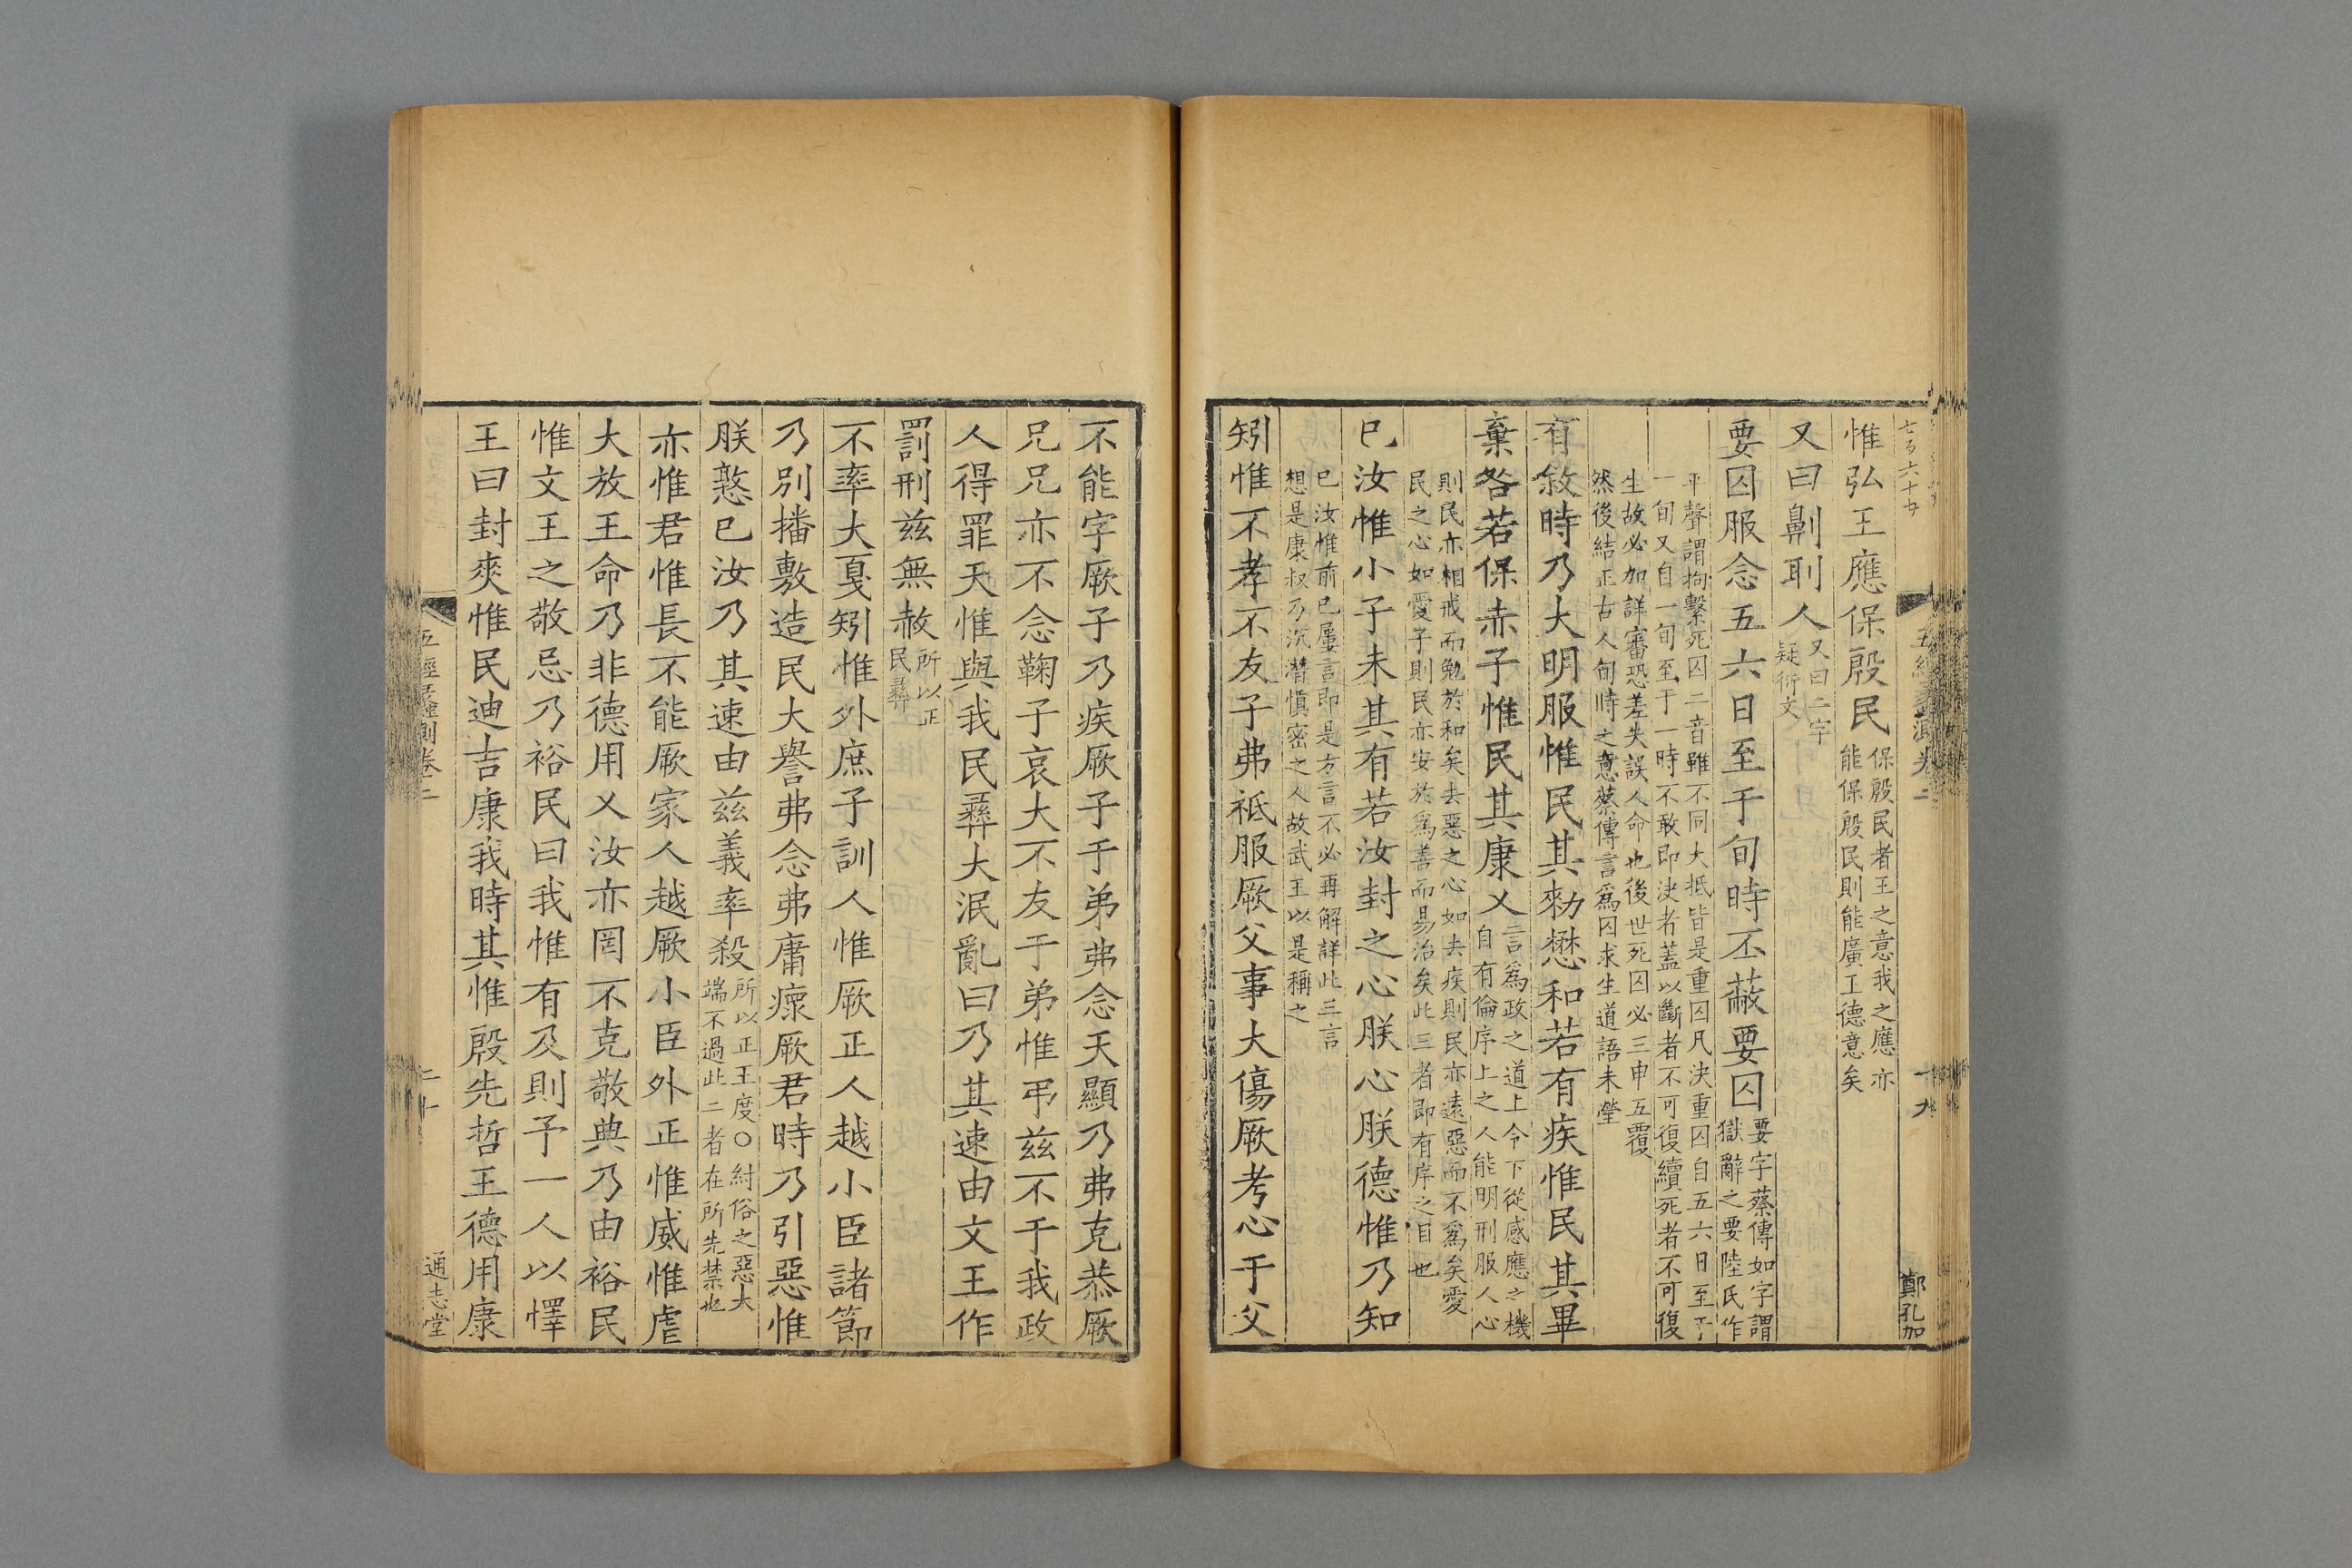 惟弘王應保殷民保殷民者王之意我之應亦
能保殷民則能廣王德意矣
又曰劓刵人又曰二字
疑衍文
要囚服念五六日至于旬時丕蔽要囚要字蔡傳如字謂
獄辭之要陸氏作
平聲謂拘繫死囚二音雖不同大抵皆是重囚凡決重囚自五六日至于
一旬又自一旬至于一時不敢即決者蓋以斷者不可復續死者不可復
生故必加詳審恐差失誤人命也後世死囚必三申五覆
然後結正古人旬時之意蔡傳言爲囚求生道語未瑩
有敘時乃大明服惟民其勑懋和若有疾惟民其畢
棄咎若保赤子惟民其康乂言爲政之道上令下從感應之機
自有倫序上之人能明刑服人心
則民亦相戒而勉於和矣去惡之心如去疾則民亦遠惡而不爲矣愛
民之心如愛子則民亦安於爲善而易治矣此三者即有序之目也
已汝惟小子未其有若汝封之心朕心朕德惟乃知
已汝惟前已屢言即是方言不必再解詳此三言
想是康叔乃沉潛慎密之人故武王以是稱之
矧惟不孝不友子弗祗服厥父事大傷厥考心于父
鄭孔加
不能字厥子乃疾厥子于弟弗念天顯乃弗克恭厥
兄兄亦不念鞠子哀大不友于弟惟弔茲不于我政
人得罪天惟與我民彞大泯亂曰乃其速由文王作
罰刑茲無赦所以正
民彞
不率大戛矧惟外庶子訓人惟厥正人越小臣諸節
乃別播敷造民大譽弗念弗庸瘝厥君時乃引惡惟
朕憝已汝乃其速由茲義率殺所以正王度○紂俗之惡大
端不過此二者在所先禁也
亦惟君惟長不能厥家人越厥小臣外正惟威惟虐
大放王命乃非德用乂汝亦罔不克敬典乃由裕民
惟文王之敬忌乃裕民曰我惟有及則予一人以懌
王曰封爽惟民迪吉康我時其惟殷先哲王德用康
二十
通志堂